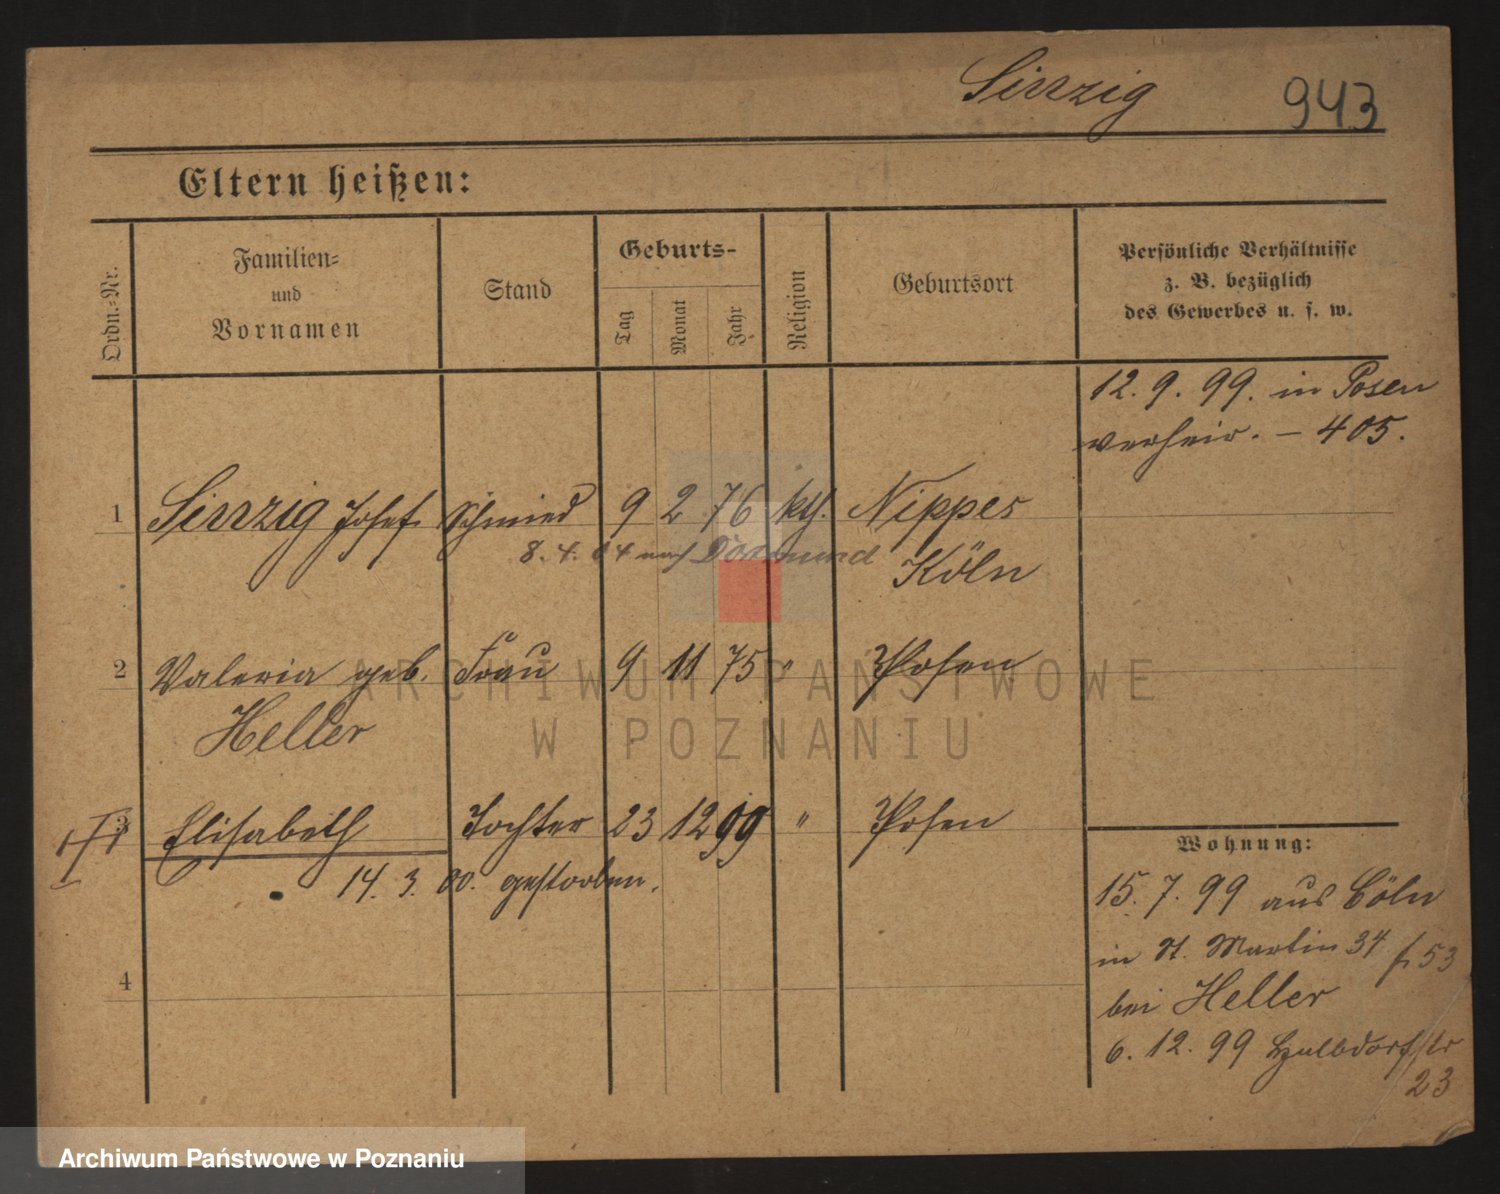 Sinzig 943
Eltern heißen:
Ordn.-Nr.
Familien-
und
Vornamen
Stand
Geburts-
Tag
Monat
Jahr
Religion
Geburtsort
Persönliche Verhältnisse
z. B. bezüglich
des Gewerbes u. s. w.
12. 9. 99. in Posen
verheir. – 405.
1 Sinzig Josef Schmied 9 2 76 kth. Nippes
8. 4. 04 nach Dortmund Köln
2 Valeria geb. Frau 9 11 75 " Posen
Heller
3 Elisabeth Tochter 23 12 99 " Posen
14. 3. 00. gestorben.
4
Wohnung:
15. 7. 99 aus Cöln
in St. Martin 34 f. 53
bei Heller
6. 12. 99
23
ARCHIWUM PAŃSTWOWE
W POZNANIU
Archiwum Państwowe w Poznaniu